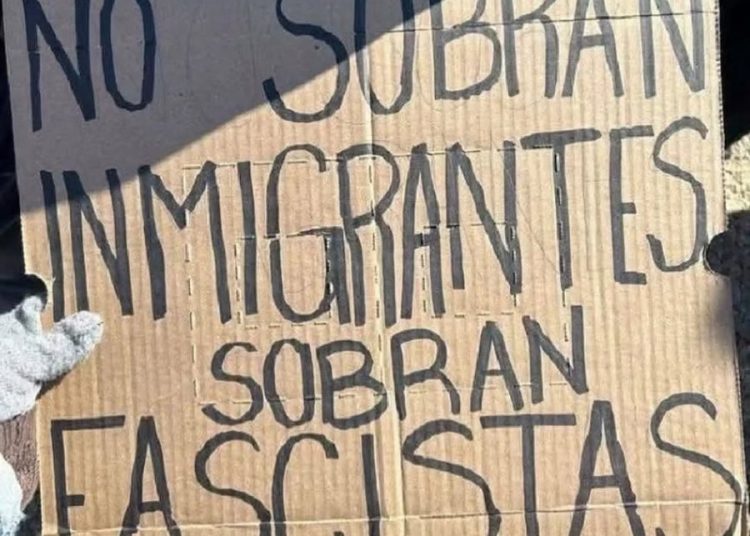 NO SOBRAN
INMIGRANTES
SOBRAN
FASCISTAS